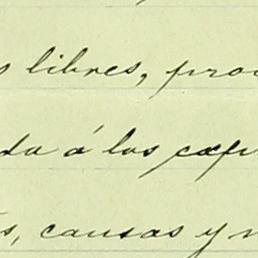 s libres, pro
da á los
s, causas y